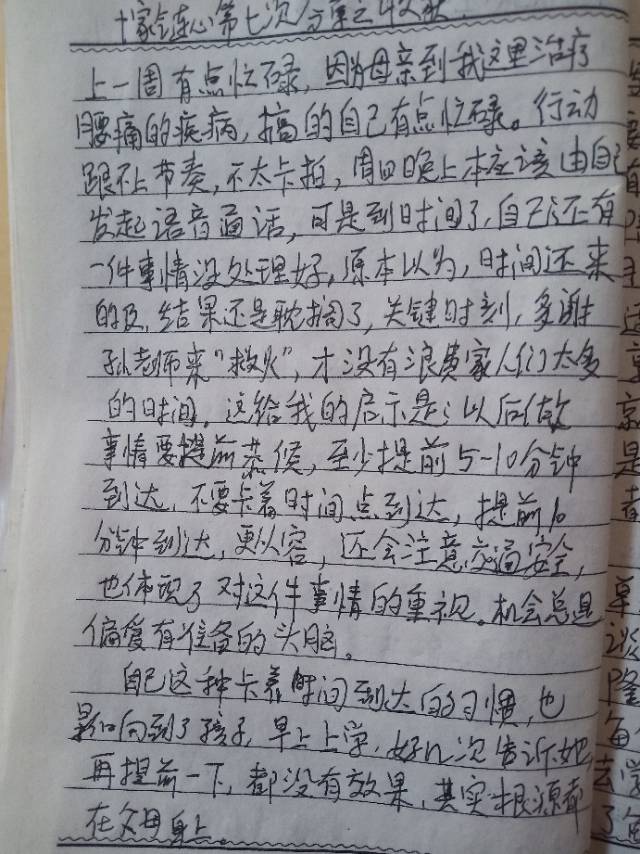 十家链心第七次方案之收获.
上一周有点忙碌，因为母亲到我这里治疗
腰痛的疾病，搞的自己有点忙碌。行动
跟不上节奏，不太卡拍，周四晚上本应该由自己
发起语音通话，可是到时间了，自己还有
一件事情没处理好，原本以为，时间还来
的及，结果还是耽搁了，关键时刻，多谢
孙老师来“救火”，才没有浪费家人们太多
的时间。这给我的启示是：以后做
事情要提前恭候，至少提前5-10分钟
到达，不要卡着时间点到达，提前10
分钟到达，更从容，还会注意交通安全，
也体现了对这件事情的重视。机会总是
偏爱有准备的头脑。
自己这种卡着时间到达的习惯，也
影响到了孩子，早上上学，好几次告诉她，
再提前一下，都没有效果，其实根源都
在父母身上。